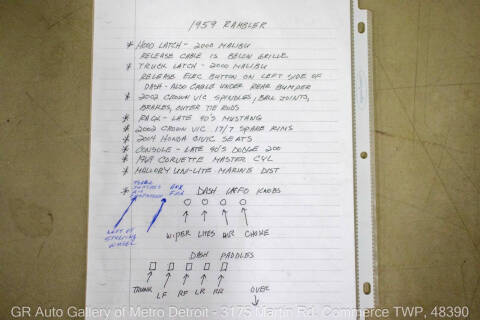 1959 RAMBLER
* HOOD LATCH - 2000 MALIBU
RELEASE CABLE IS BELOW GRILLE
* TRUCK LATCH - 2000 MALIBU
RELEASE ELEC BUTTON ON LEFT SIDE OF
DASH - ALSO CABLE UNDER REAR BUMPER
* 2002 CROWN VIC SPINDLES, BALL JOINTS,
BRAKES, OUTER TIE RODS
* RACK - LATE 90'S MUSTANG
* 2002 CROWN VIC 17/7 SPARE RIMS
* 2004 HONDA CIVIC SEATS
* CONSOLE - LATE 90'S DODGE 200
* 1969 CORVETTE MASTER CYL
* MALLORY UNI-LITE MARINE DIST
* DASH KNOBS
FAN
LEFT OF
STEERING
WHEEL
WIPER LITES AIR CHOKE
DASH PADDLES
TRUNK LF RF LR RR
OVER
GR Auto Gallery of Metro Detroit - 3175 Martin Rd. Commerce TWP, 48390